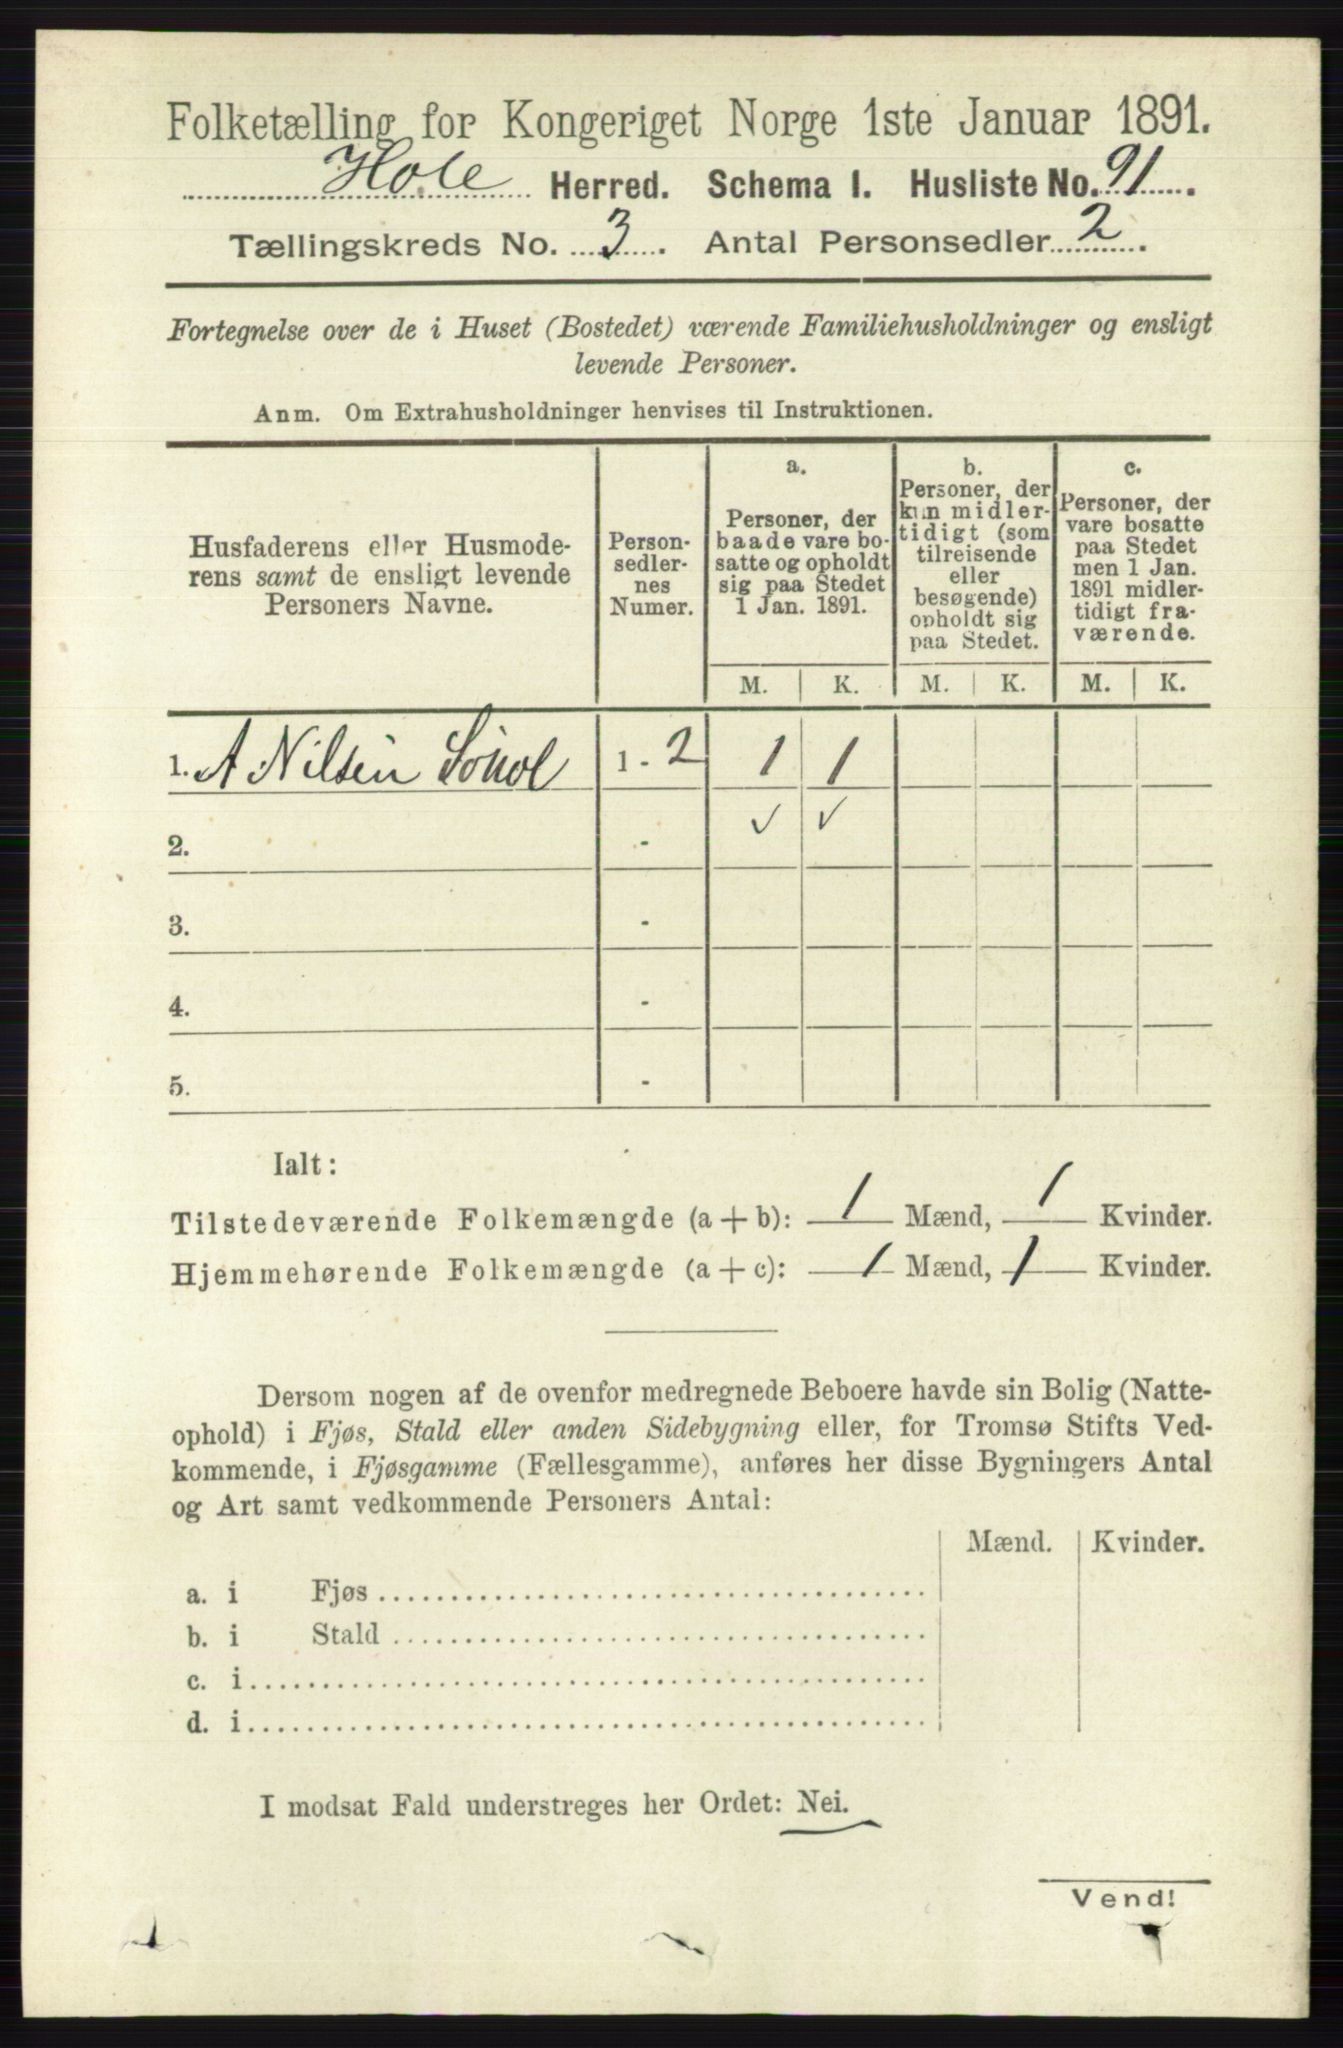 Folketælling for Kongeriget Norge 1ste Januar 1891.
Hole Herred. Schema 1. Husliste No. 91.
Tællingskreds No. 3. Antal Personsedler 2.
Fortegnelse over de i Huset (Bostedet) værende Familiehusholdninger og ensligt
levende Personer.
Anm. Om Extrahusholdninger henvises til Instruktionen.
Husfaderens eller Husmode-
rens samt de ensligt levende
Personers Navne.
Person-
sedler-
nes
Numer.
a.
Personer, der
baade vare bo-
satte og opholdt
sig paa Stedet
1 Jan. 1891.
b.
Personer, der
kun midler-
tidigt (som
tilreisende
eller
besøgende)
opholdt sig
paa Stedet.
c.
Personer, der
vare bosatte
paa Stedet
men 1 Jan.
1891 midler-
tidigt fra-
værende.
M. K. M. K. M. K.
1. A Nilsen 1 - 2 1 1
2. - ✓ ✓
3. -
4. -
5. -
Ialt:
Tilstedeværende Folkemængde (a + b): 1 Mænd, 1 Kvinder.
Hjemmehørende Folkemængde (a + c): 1 Mænd, 1 Kvinder.
Dersom nogen af de ovenfor medregnede Beboere havde sin Bolig (Natte-
ophold) i Fjøs, Stald eller anden Sidebygning eller, for Tromsø Stifts Ved-
kommende, i Fjøsgamme (Fællesgamme), anføres her disse Bygningers Antal
og Art samt vedkommende Personers Antal:
Mænd. Kvinder.
a. i Fjøs
b. i Stald
c. i
d. i
I modsat Fald understreges her Ordet: Nei.
Vend!